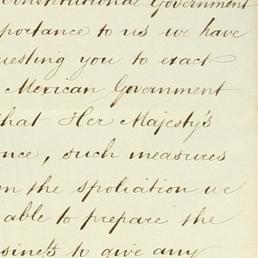 Constitutional Government
portance to us we have
uesting you to exact
Mexican Government
that Her Majesty's
nce, such measures
m the spoliation we
able to prepare the
siness to give any